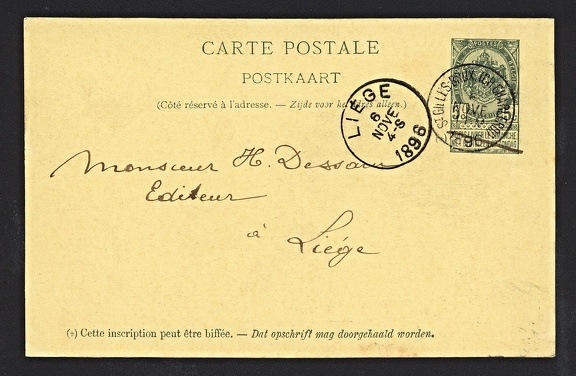 CARTE POSTALE
POSTKAART
(Côté réservé à l'adresse. — Zijde voor het adres alleen.)
LIÉGE
6
NOVE
4-S
1896
POSTES
NOVE
96
Monsieur H. Dessain
Editeur
à Liége
(+) Cette inscription peut être biffée. — Dat opschrift mag doorgehaald worden.